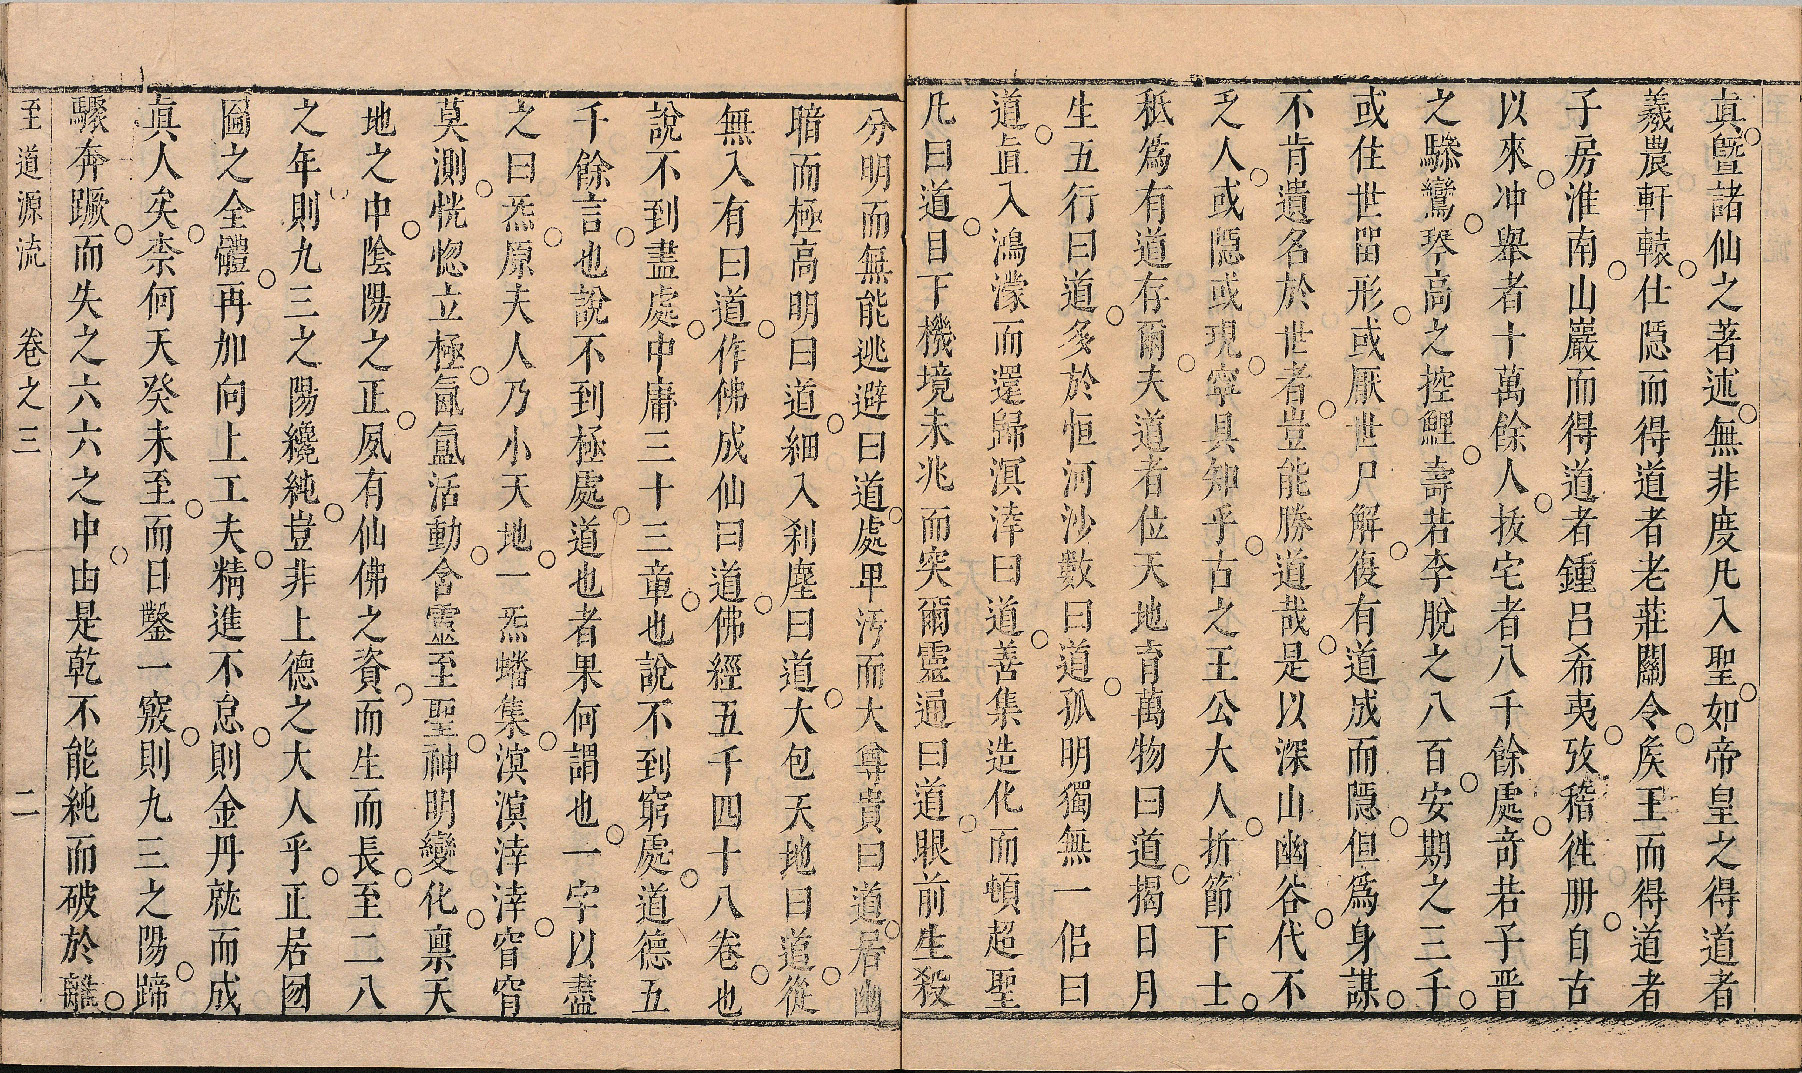 眞曁諸仙之著述無非度凡入聖如帝皇之得道者
羲農軒轅仕隱而得道者老莊關令矦王而得道者
子房淮南山巖而得道者鍾呂希夷攷稽徃册自古
以來冲舉者十萬餘人拔宅者八千餘處竒若子晋
之驂鸞琴高之控鯉壽若李脫之八百安期之三千
或住世畱形或厭世尸解復有道成而隱但爲身謀
不肯遺名於世者豈能勝道哉是以深山幽谷代不
乏人或隱或現寧具知乎古之王公大人折節下士
秪爲有道存爾夫道者位天地育萬物曰道揭日月
生五行曰道多於恒河沙數曰道孤明獨無一侣曰
道直入鴻濛而還歸溟涬曰道善集造化而頓超聖
凡曰道目下機境未兆而突爾靈通曰道眼前生殺
分明而無能逃避曰道處卑污而大尊貴曰道居幽
暗而極高明曰道細入刹塵曰道大包天地曰道從
無入有曰道作佛成仙曰道佛經五千四十八卷也
說不到盡處中庸三十三章也說不到窮處道德五
千餘言也說不到極處道也者果何謂也一字以盡
之曰炁原夫人乃小天地一炁蟠集溟溟涬涬窅窅
莫測恍惚立極氤氳活動含靈至聖神明變化禀天
地之中隂陽之正夙有仙佛之資而生而長至二八
之年則九三之陽纔純豈非上德之大人乎正居囫
圇之全體再加向上工夫精進不怠則金丹就而成
眞人矣柰何天癸未至而日鑿一竅則九三之陽蹄
驟奔蹶而失之六六之中由是乾不能純而破於離
至道源流　卷之三　二